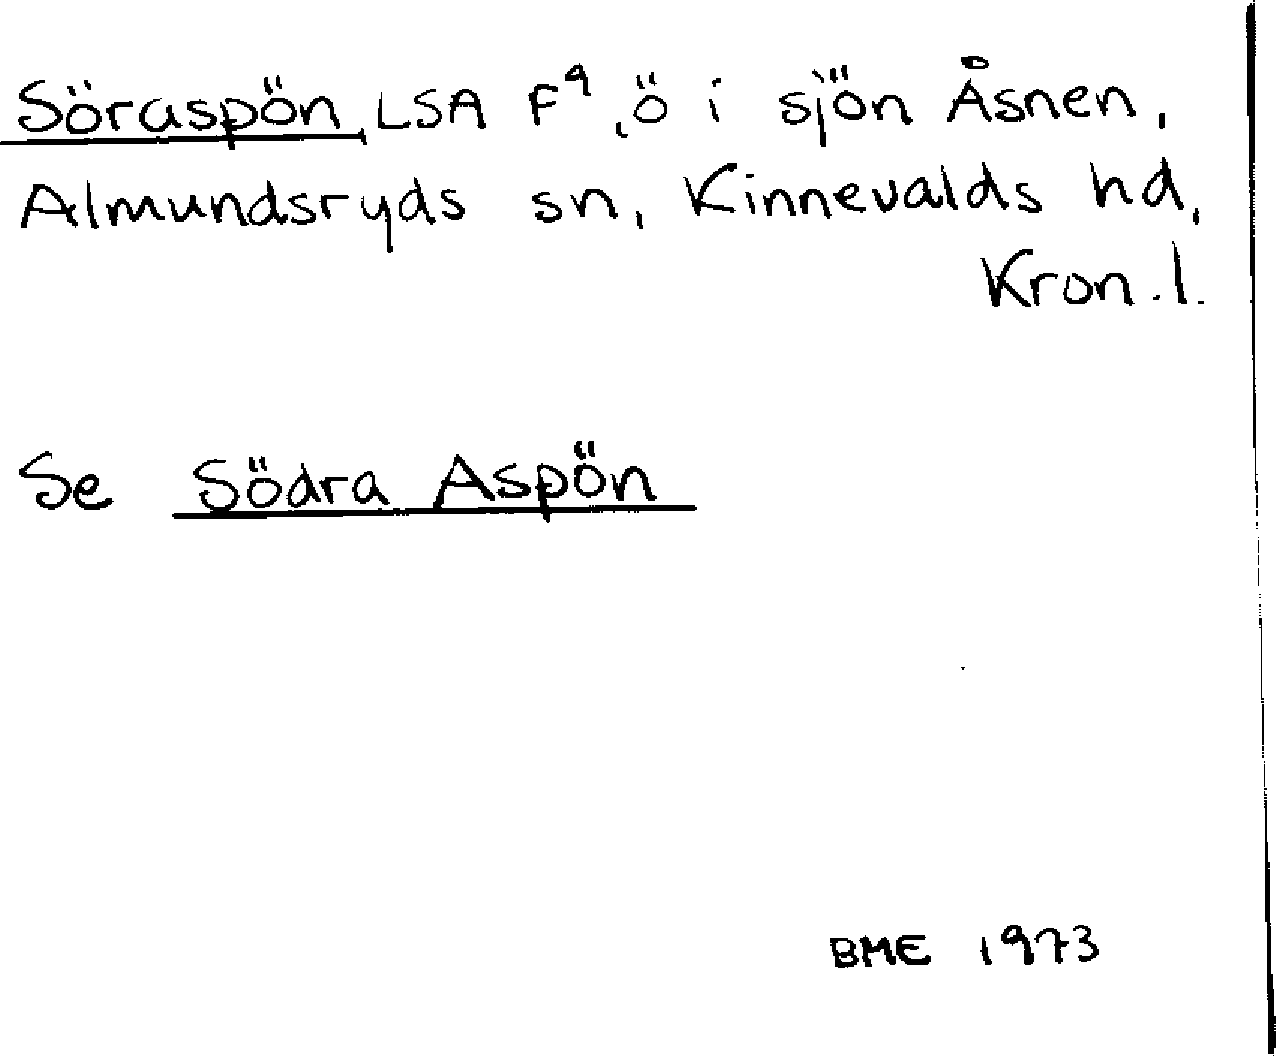 Söraspön, LSA F⁹, ö i sjön Åsnen,
Almundsryds sn, Kinnevalds hd,
Kron.l.
Se Södra Aspön
BME 1973